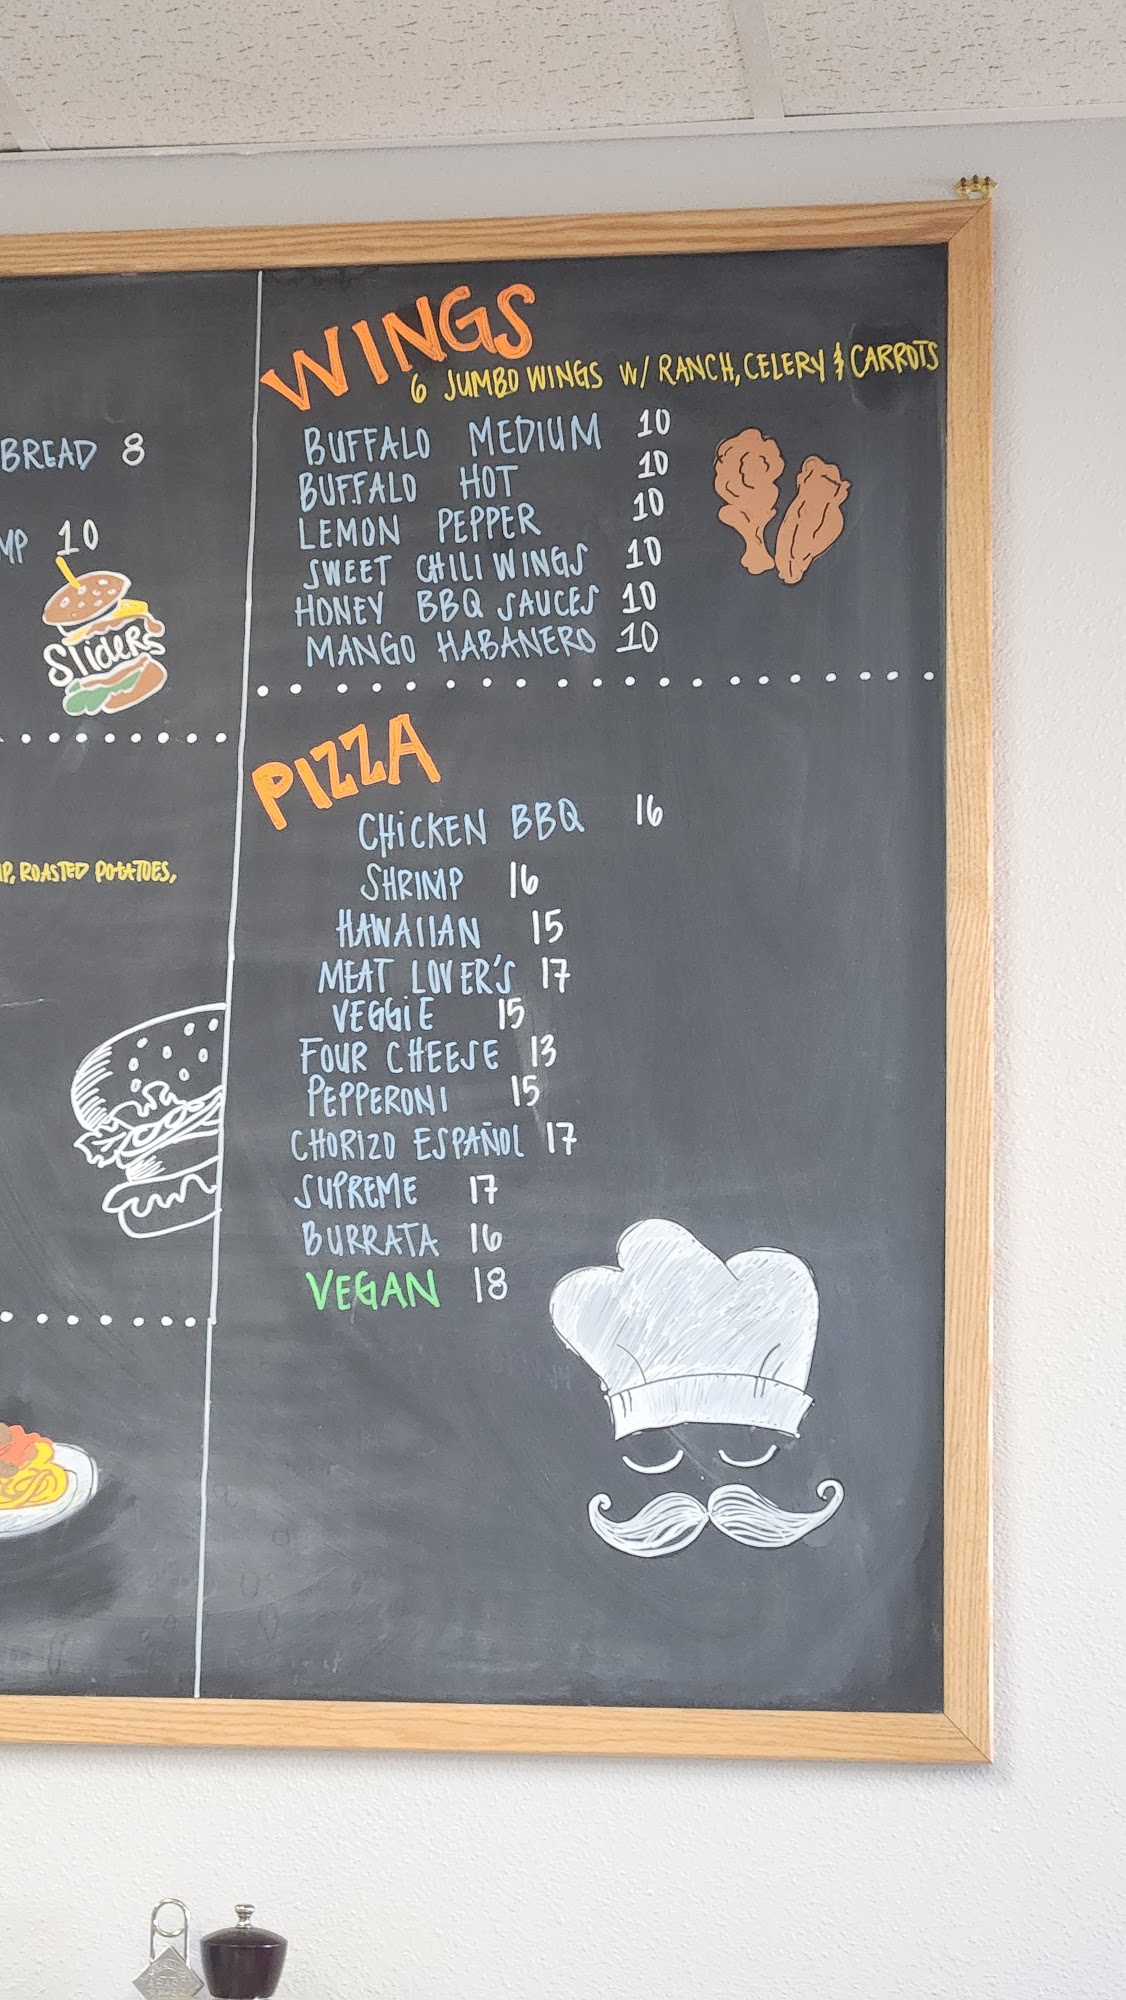 BREAD 8
10
SLIDERS
ROASTED POTATOES,
WINGS
6 JUMBO WINGS W/ RANCH, CELERY & CARROTS
BUFFALO MEDIUM 10
BUFFALO HOT 10
LEMON PEPPER 10
SWEET CHILI WINGS 10
HONEY BBQ SAUCES 10
MANGO HABANERO 10
PIZZA
CHICKEN BBQ 16
SHRIMP 16
HAWAIIAN 15
MEAT LOVER'S 17
VEGGIE 15
FOUR CHEESE 13
PEPPERONI 15
CHORIZO ESPAÑOL 17
SUPREME 17
BURRATA 16
VEGAN 18